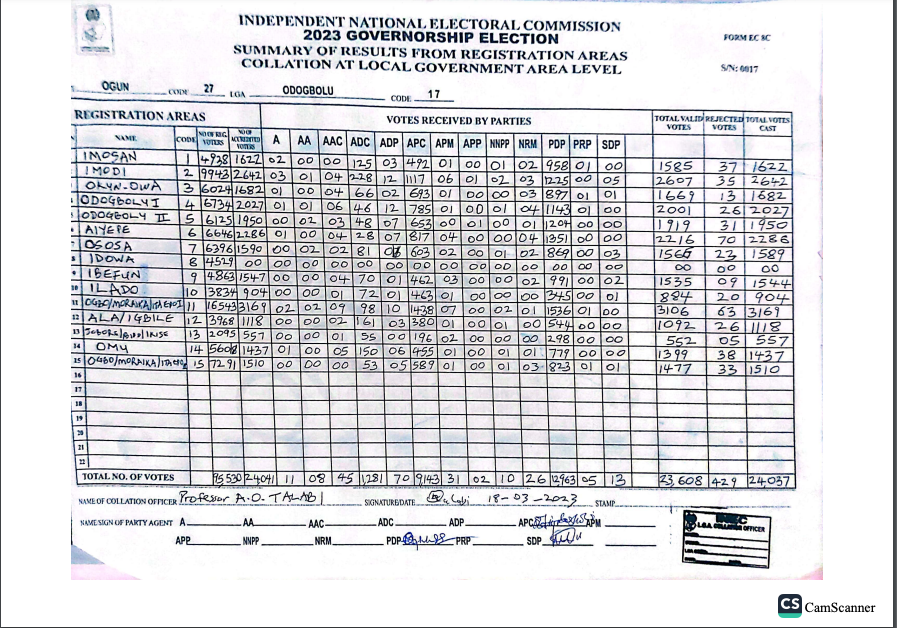 INDEPENDENT NATIONAL ELECTORAL COMMISSION
2023 GOVERNORSHIP ELECTION
FORM EC 8C
SUMMARY OF RESULTS FROM REGISTRATION AREAS
COLLATION AT LOCAL GOVERNMENT AREA LEVEL
S/N: 0017
OGUN CODE 27 LGA ODOGBOLU CODE 17
REGISTRATION AREAS VOTES RECEIVED BY PARTIES TOTAL VALID VOTES REJECTED VOTES TOTAL VOTES CAST
NAME CODE NO OF REG. VOTERS NO OF ACCREDITED VOTERS A AA AAC ADC ADP APC APM APP NNPP NRM PDP PRP SDP
IMOSAN 1 4938 1622 02 00 00 125 03 492 01 00 01 02 958 01 00 1585 37 1622
IMODI 2 9943 2642 03 01 04 228 12 1117 06 01 02 03 1225 00 05 2607 35 2642
OKUN-OWA 3 6024 1682 01 00 04 66 02 693 01 00 00 03 897 01 01 1669 13 1682
ODOGBOLU I 4 6734 2027 01 01 06 46 12 785 01 00 01 04 1143 01 00 2001 26 2027
ODOGBOLU II 5 6125 1950 00 02 03 48 07 653 00 01 00 01 1204 00 00 1919 31 1950
AIYEPE 6 6646 2286 01 00 04 28 07 817 04 00 00 04 1351 00 00 2216 70 2286
OSOSA 7 6396 1590 00 02 02 81 603 02 00 01 02 869 00 03 1566 23 1589
IDOWA 8 4529 00 00 00 00 00 00 00 00 00 00 00 00 00 00 00 00 00
IBEFUN 9 4863 1547 00 00 04 70 01 462 03 00 00 02 991 00 02 1535 09 1544
ILADO 10 3834 904 00 00 01 72 01 463 01 00 00 00 345 00 01 884 20 904
11 OGBO/MORAIKA/ITA EPO I 11 16543 3169 02 02 09 98 10 1438 07 00 02 01 1536 01 00 3106 63 3169
12 ALA/IGBILE 12 3968 1118 00 00 02 161 03 380 01 00 01 00 544 00 00 1092 26 1118
13 13 2095 557 00 00 01 55 00 196 02 00 00 00 298 00 00 552 05 557
14 OMU 14 5608 1437 01 00 05 150 06 455 01 00 01 01 779 00 00 1399 38 1437
15 OGBO/MORAIKA/ITA EPO 15 7291 1510 00 00 00 53 05 589 01 00 01 03 823 01 01 1477 33 1510
16
17
18
19
20
21
22
TOTAL NO. OF VOTES 95530 24041 11 08 45 1281 70 9143 31 02 10 26 12963 05 13 23,608 429 24,037
NAME OF COLLATION OFFICER Professor A.O. TALABI SIGNATURE/DATE 18-03-2023 STAMP
NAME/SIGN OF PARTY AGENT A AA AAC ADC ADP APC APM
APP NNPP NRM PDP PRP SDP
INEC
L.G.A. COLLATION OFFICER
CS CamScanner